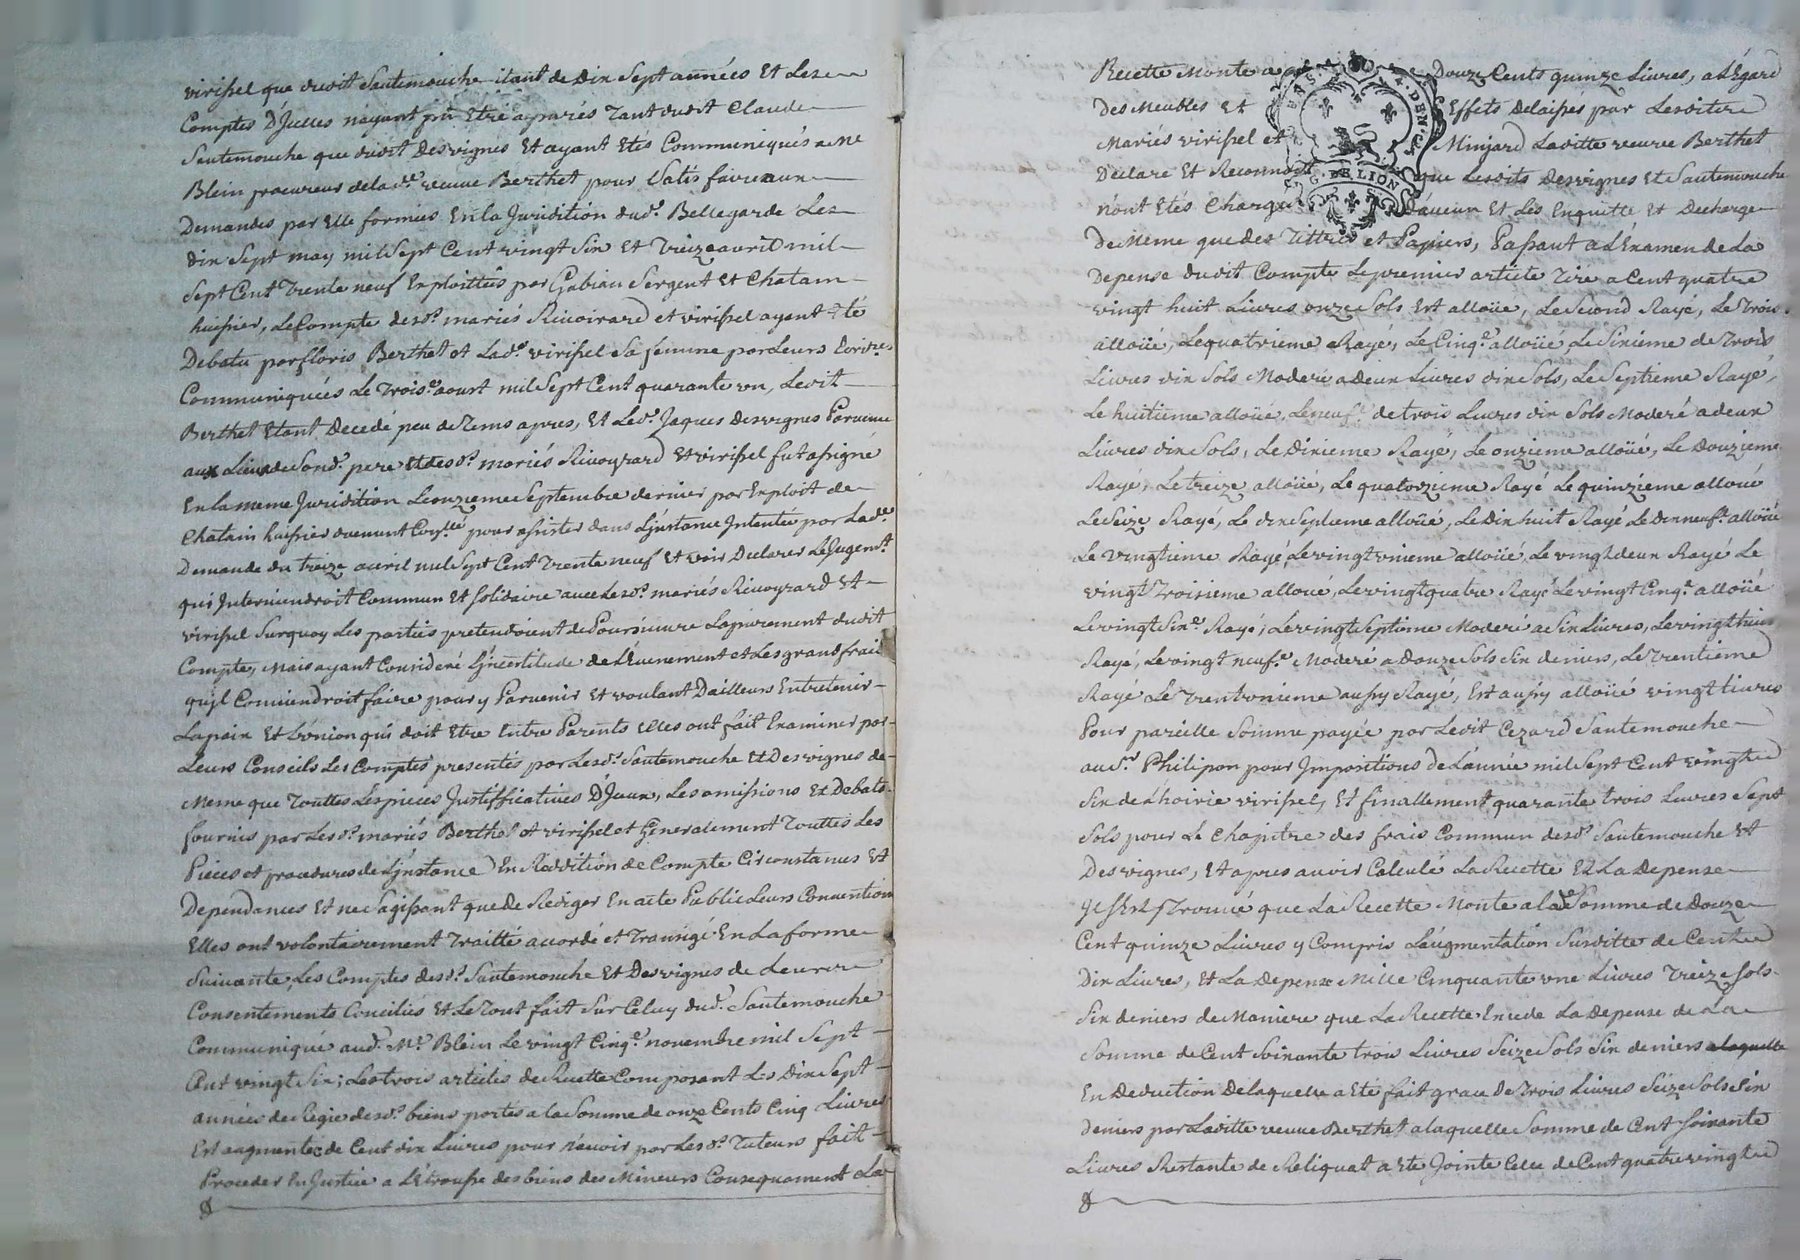 virissel que dudit Sautemouche etant de Dix Sept années Et Les
Comptes D'Jcelles n'ayant pû Etre apurés Tant dudit Claude
Sautemouche que dudit Desvignes Et ayant Etés Communiqués a Me
Blein procureur de lade veuve Berthet pour Satisfaire aux
Demandes par Elle formées En la Juridition dud. Bellegarde Les
dix Sept may mil Sept Cent vingt Six Et Treize avril mil
Sept Cent Trente neuf Exploittées par Gabian Sergent Et Chatain
huissier, Le Compte desd. mariés Rivoirard et virissel ayant eté
Debatu par floris Berthet et Lad. virissel Sa femme par Leurs Ecritres
Communiquées Le Trois.e aoust mil Sept Cent quarante un, Ledit
Berthet Etant Decedé peu de Tems apres, Et Led. Jaques Desvignes Parvenu
aux Lieu de Sond. pere Et desd. mariés Rivoyrard Et virissel fut assigné
En la meme Juridition Le onzieme Septembre dernier par Exploit de
Chatain huissier duement pour assister dans L'jnstance Jntentée par Lade
Demande du treize avril mil Sept Cent Trente neuf Et voir Declarer Le Jugemt
qui Jnterviendroit Commun Et Solidaire avec Lesd. mariés Rivoyrard Et
virissel Surquoy Les parties pretendoient de Poursuivre L'apurement dudit
Compte, Mais ayant Consideré L'jncertitude de L'Evenement et Les grands frais
qu'jl Conviendroit faire pour y Parvenir Et voulant D'ailleurs Entretenir
La paix Et L'union qui doit Etre Entre Parents Elles ont fait Examiner par
Leurs Conseils Les Comptes presentés par Lesd. Sautemouche Et Desvignes de
Meme que Touttes Les pieces Justifficatives D'Jceux, Les omissions Et Debats
fournis par Les d. mariés Berthet et virissel et Generalement Touttes Les
Pieces et procedures de L'jnstance En Reddition de Compte Circonstances Et
Dependances Et ne S'agissant que de Rediger En acte Public Leurs Conventions
Elles ont volontairement Traitté accordé et Transigé En La forme
Suivante, Les Comptes desd. Sautemouche Et Desvignes de Leurs
Consentements Conciliés Et Le Tout fait Sur Celuy dud. Sautemouche
Communiqué aud. Me Blein Le vingt Cinq.e novembre mil Sept
Cent vingt Six; Les trois articles de Recette Composant Les Dix Sept
années de Regie desd. biens portés a la Somme de onze Cents Cinq Livres
Est augmentée de Cent dix Livres pour n'avoir par Les d. Tuteurs fait
Proceder En Justice a L'étrousse des biens des Mineurs Consequament La
Recette Monte a Douze Cents quinze Livres, a L'Egard
Des Meubles Et Effets Delaissés par Lesdits
Mariés virissel et Minjard Laditte veuve Berthet
Declare Et Reconnoit que Lesdits Desvignes Et Sautemouche
n'ont Etés Chargés D'aucun Et Les En quitte Et Decharge
De Meme que des Tittres et Papiers, Passant a L'Examen de La
Depense dudit Compte Le premier article Tiré a Cent quatre
vingt huit Livres onze Sols Est alloüé, Le Second Rayé, Le Trois.
alloüé, Le quatrieme Rayé, Le Cinq.e alloüé Le Sixieme de Trois
Livres dix Sols Moderé a Deux Livres dix Sols, Le Septieme Rayé,
Le huitieme alloüé, Le neuf.e de trois Livres dix Sols Moderé a deux
Livres dix Sols, Le Dixieme Rayé, Le onzieme alloüé, Le Douzieme
Rayé, Le treize alloüé, Le quatorzieme Rayé Le quinzieme alloué
Le Seize Rayé, Le dix Septieme alloüé, Le Dix huit Rayé Le Dix neuf.e alloüé
Le vingtieme Rayé, Le vingt unieme alloüé, Le vingt deux Rayé Le
vingt Troisieme alloué, Le vingt quatre Rayé Le vingt Cinq.e alloüé
Le vingt Six.e Rayé, Le vingt Septieme Moderé a Six Livres, Le vingt huit
Rayé, Le vingt neuf.e Moderé a Douze Sols Six deniers, Le Trentieme
Rayé Le Trent'unieme aussy Rayé, Est aussy alloüé vingt Livres
Pour pareille Somme payée par Ledit Cezard Sautemouche
au Sr. Philipon pour Jmpositions de L'année mil Sept Cent vingt
Six de L'hoirie virissel, Et finallement quarante trois Livres Sept
Sols pour Le Chapitre des frais Commun desd. Sautemouche Et
Desvignes, Et apres avoir Calculé La Recette Et La Depense
Jl S'Est Trouvé que La Recette Monte a la Somme de Douze
Cent quinze Livres y Compris L'augmentation Susditte de Cent
Dix Livres, Et La Depense Mille Cinquante une Livres Treize Sols
Six deniers de Maniere que La Recette Excede La Depense de La
Somme de Cent Soixante trois Livres Seize Sols Six deniers a laquelle
En Deduction De laquelle a Eté fait grace de Trois Livres Seize Sols Six
Deniers par Laditte veuve Berthet a laquelle Somme de Cent Soixante
Livres Restante de Reliquat a Eté Jointe Celle de Cent quatre vingt
G. DE LION